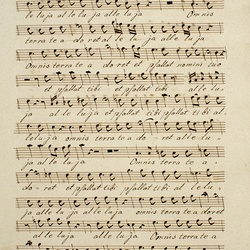 leluja alleluja alleluja Omnis
terra te adoret alleluja alleluja
Omnis terra te adoret et psallat nomini tuo
et psallat tibi et psallat tibi alle
ja alleluja et psallat tibi psallat tibi al
leluja omnis terra te adoret allelu
ja alleluja Omnis terra te a
doret et psallat tibi et psallat tibi allelu
ja alleluja alleluja omnis terra te adoret
alleluja alleluja alleluja